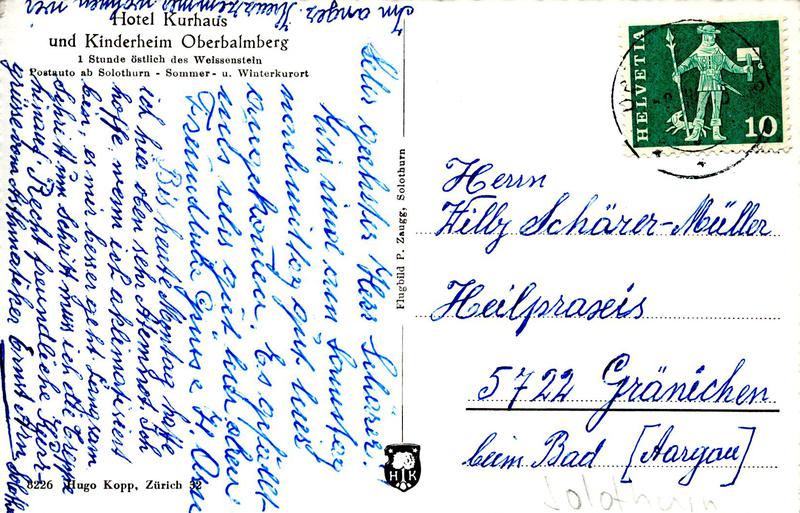 Hotel Kurhaus
und Kinderheim Oberbalmberg
1 Stunde östlich des Weissenstein
Postauto ab Solothurn - Sommer- u. Winterkurort
Sehr geehrter Herr Schärer.
Wir sind am Sonntag
nachmittag gut hier
angekommen. Es gefällt
uns sehr gut hier oben
Freundliche Grüsse H. Arn
Bis heute Montag hatte
ich hier oben sehr Atemnot. Ich
hoffe, wenn ich aklimatisiert
bin, es mir besser geht. Langsam
Schritt um Schritt muss ich die Treppe
hinauf. Recht freundliche
grüsse vom Asthmatiker Ernst Arn
8226 Hugo Kopp, Zürich 32
Flugbild P. Zaugg, Solothurn
HK
HELVETIA
10
Herrn
Willy Schärer-Müller
Heilpraxis
5722 Gränichen
beim Bad [Aargau]
Solothurn